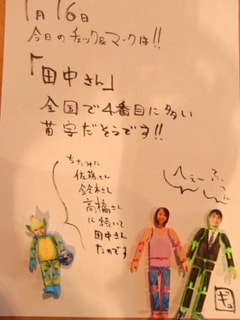 1月16日
今日のチェック&マークは!!
「田中さん」
全国で4番目に多い
苗字だそうです!!
ちなみに
佐藤さん
鈴木さん
高橋さん
に続いて
田中さん
なのです
へぇー